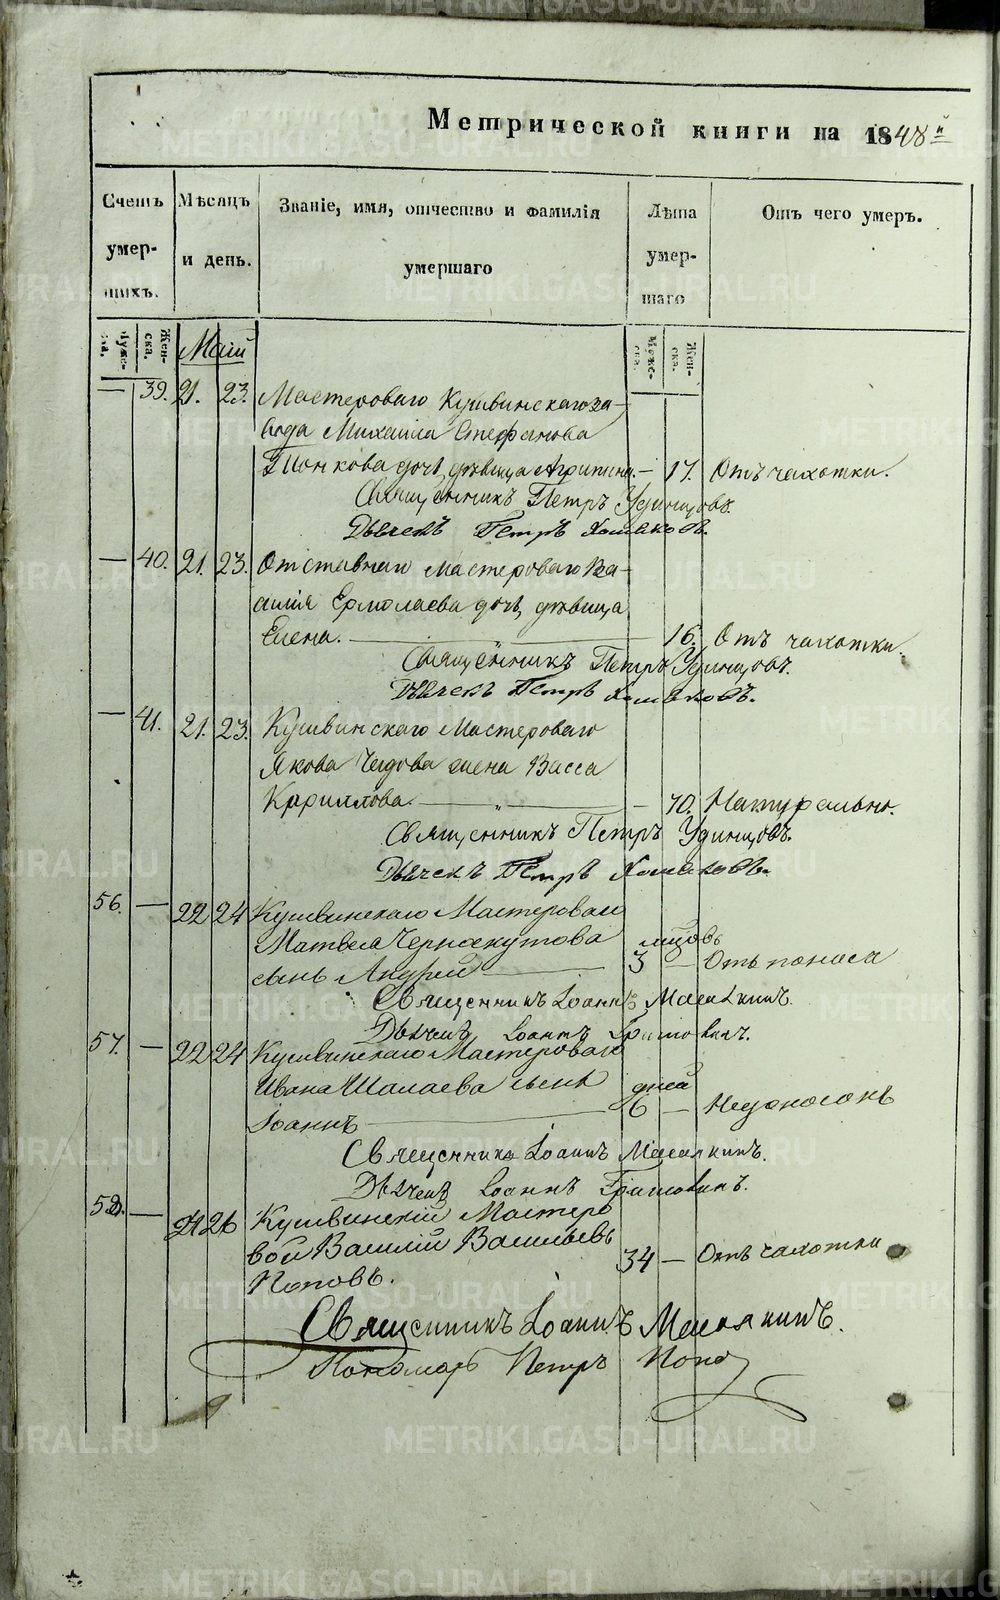 Метрической книги на 1848й
Счетъ умершихъ.
Мѣсяцъ и день.
Званіе, имя, отчество и фамилія умершаго
Лѣта умершаго
Отъ чего умеръ.
Мужеска.
Женска.
Май
Мужеска.
Женска.
— 39. 21. 23. Мастероваго Кушвинскаго за-
вода Михаила Стефанова
дочь, дѣвица Агрипина. — 17. Отъ чахотки.
Священникъ Петръ Удинцовъ.
Дьячекъ Петръ Хомяковъ.
— 40. 21. 23. Отставнаго мастероваго Ва-
силія Ермолаева дочь, дѣвица
Елена. — 16. Отъ чахотки.
Священникъ Петръ Удинцовъ.
Дьячекъ Петръ Хомяковъ.
— 41. 21. 23. Кушвинскаго Мастероваго
Якова жена Васса
Кириллова. — " — 70. Натурально.
Священникъ Петръ Удинцовъ.
Дьячекъ Петръ Хомяковъ.
56. — 22 24 Кушвинскаго Мастероваго
Матвея Черноскутова
сынъ Андрей — 3 — Отъ поноса
Священникъ Іоаннъ
Дьячекъ Іоаннъ
57. — 22 24 Кушвинскаго Мастероваго
Ивана Шалаева сынъ дней
Іоаннъ — 6 — Недоносокъ
Священникъ Іоаннъ
Дьячекъ Іоаннъ
58. — 24 26 Кушвинскій Мастеро
вой Василій Васильевъ 34 — Отъ чахотки
Поповъ.
Священникъ Іоаннъ
Пономарь Петръ Попо
METRIKI.GASO-URAL.RU